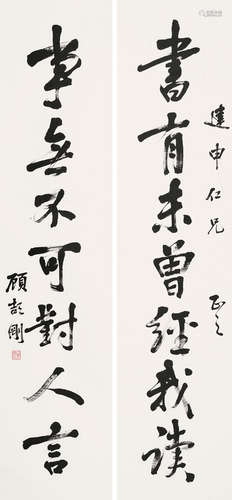 建申仁兄 正之
書有未曾經我讀
事無不可對人言
顧頡剛